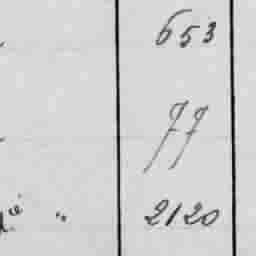 653
77
2120